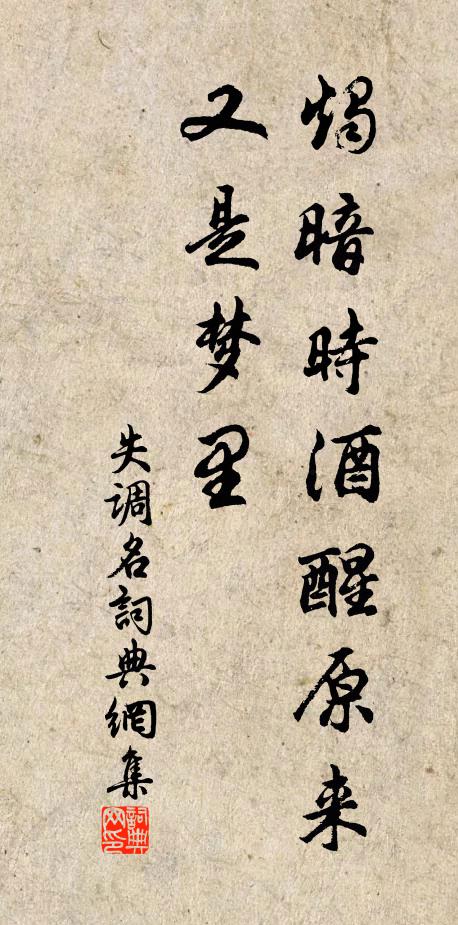 烛暗時酒醒原来
又是梦里
失调名詞典網集
詞典网印